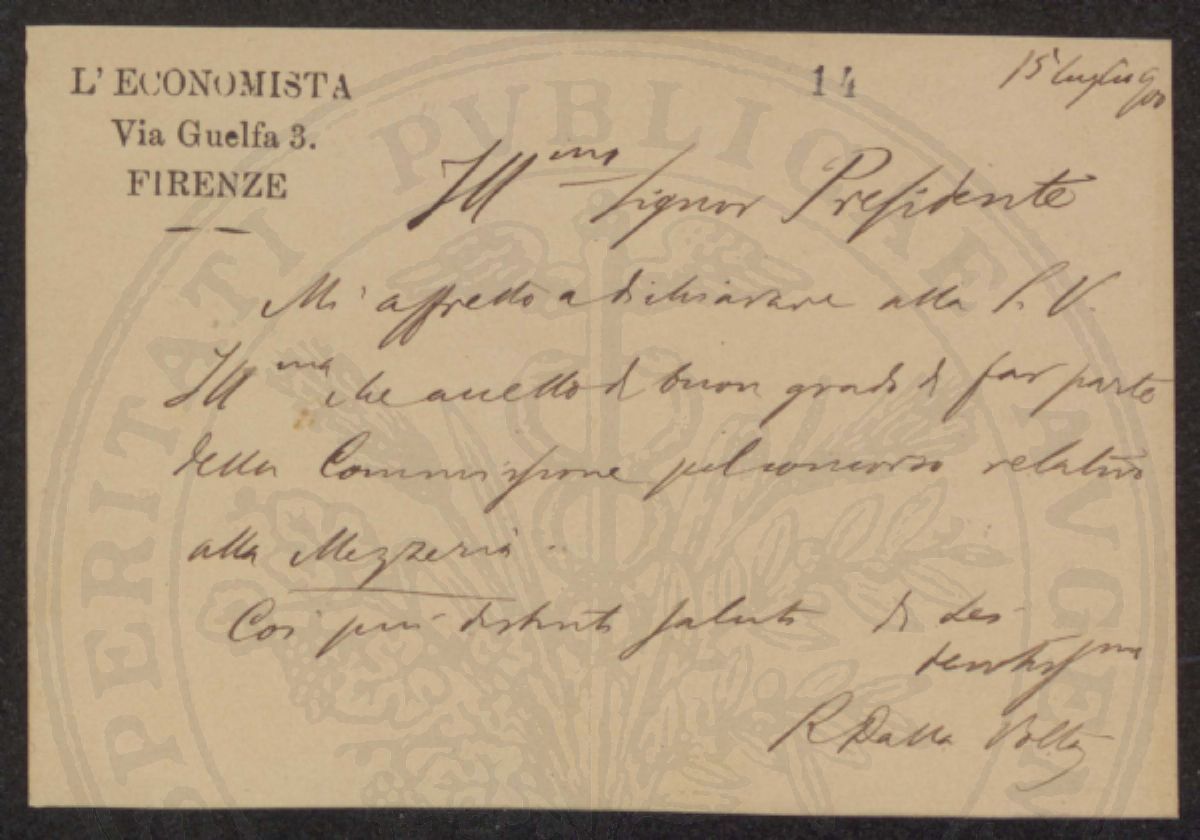 L' ECONOMISTA
Via Guelfa 3.
FIRENZE
14
15 luglio 900
Ill.mo Signor Presidente
Mi affretto a dichiarare alla S. V.
Ill.ma che accetto di buon grado di far parte
della Commissione pel concorso relativo
alla Mezzeria.
Coi più distinti saluti di Lei
devotissmo
R Dalla Volta
PERITATI PUBLICAE AUGEN